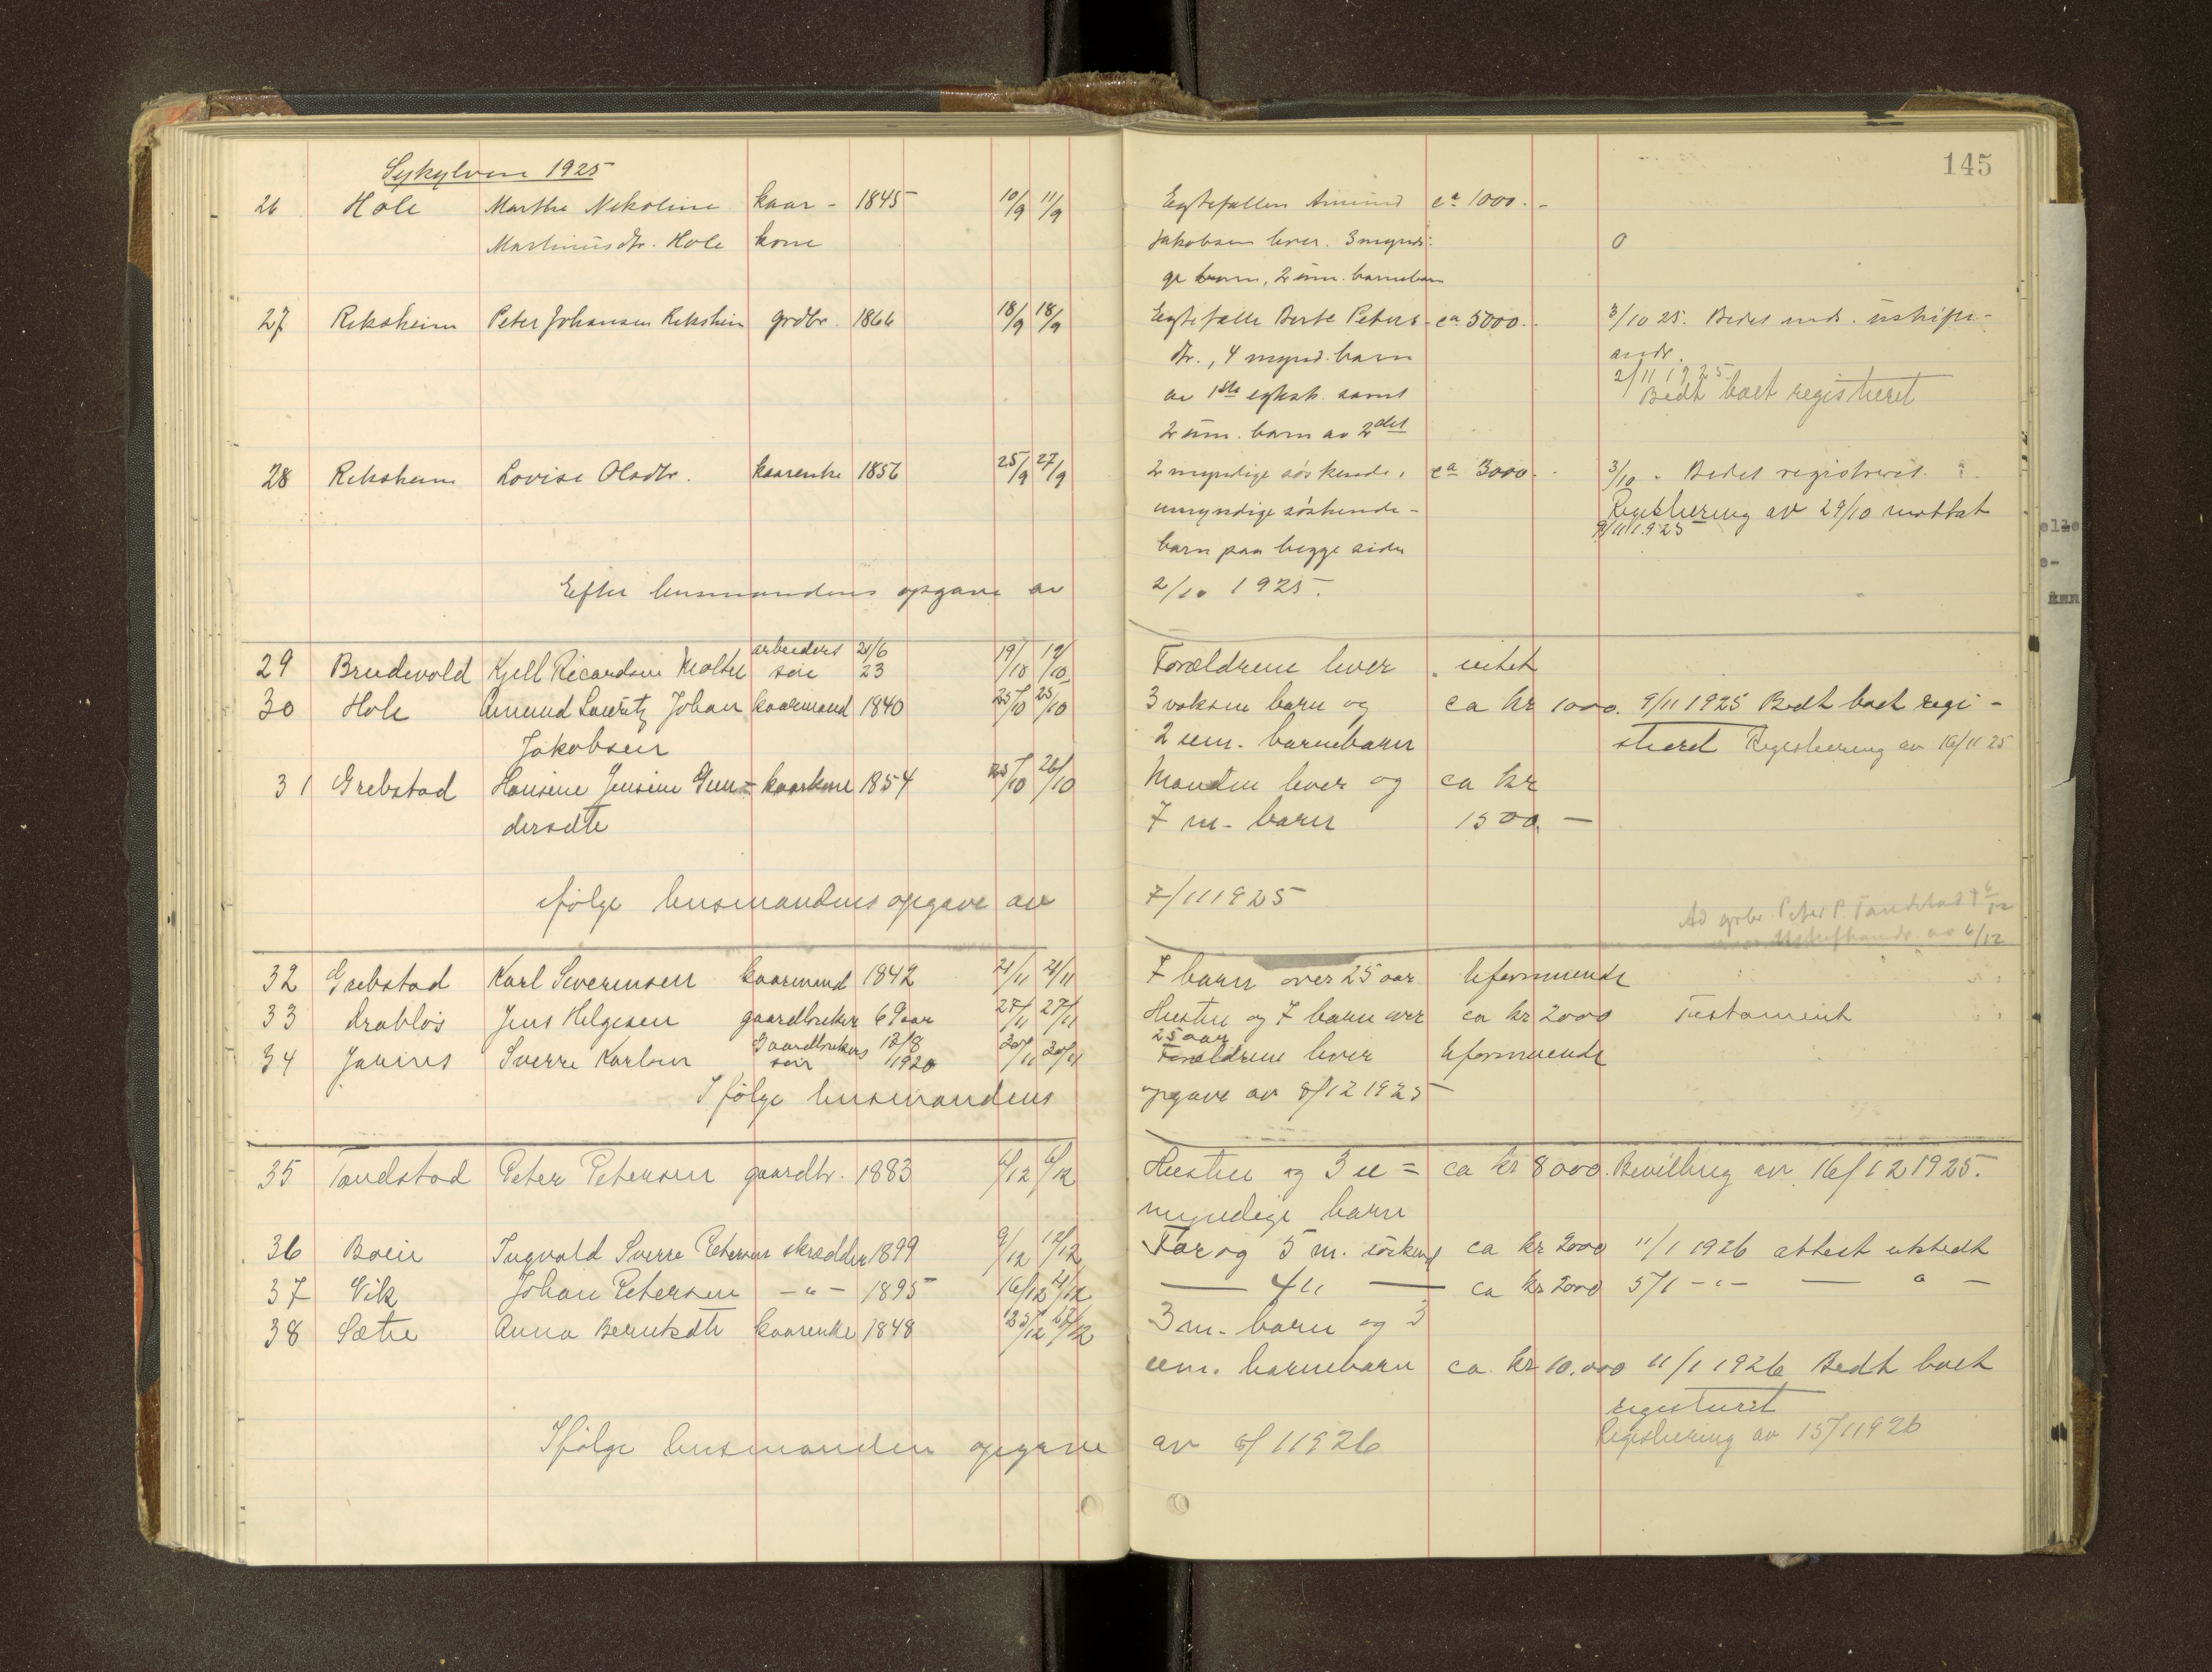 145
Sykylven 1925
26 Hole Marthe Nikoline kaar- 1845 10/9 11/9 Egtefællen Amund ca 1000.-
Martinusdtr. Hole kone Jakobsen lever. 3 myndi- 0
ge barn, 2 um. barnebarn
27 Reksheim Peter Johansen Reksheim grdbr. 1866 18/9 18/9 Egtefælle Berte Peters- ca 5000.- 3/10 25. Bedt inds. uskifte-
dtr., 4 mynd. barn andr.
2/11 1925
av 1ste egtesk. samt Bedt boet registreret
2 um. barn av 2det
28 Reksheim Lovise Olsdtr. kaarenke 1856 25/9 27/9 2 myndige søskende, ca 3000.- 3/10 - Bedet registreret.
umyndige søskende- Registrering av 29/10 mottat
9/11 1925
barn paa begge sider
Efter lensmandens opgave av 2/10 1925.
29 Brudevold Kjell Ricardsen Moltu arbeiders søn 21/6 23 19/10 19/10 Forældrene lever intet
30 Hole Amund Lauritz Johan kaarmand 1840 25/10 25/10 3 voksne barn og ca kr 1000. 9/11 1925 Bedt boet regi-
Jakobsen 2 um. barnebarn streret Registrering av 16/11 25
31 Grebstad Hansine Jensine Gun- kaarkone 1854 25/10 26/10 Manden lever og ca kr
dersdtr 7 m. barn 1500.-
ifølge lensmandens opgave av 7/11 1925
Ad grbr. Peter P. Tandstad † 6/12
Uskiftandr. av 6/12
32 Grebstad Karl Severinsen kaarmand 1842 21/11 21/11 7 barn over 25 aar Uformuende
33 Drabløs Jens Helgesen gaardbruker 69 aar 27/11 27/11 Hustru og 7 barn over ca kr 2000 Testament
25 aar
34 Sverre Karlsen Gaardbrukers søn 12/8 1920 20/11 20/11 Forældrene lever Uformuende
Ifølge lensmandens opgave av 8/12 1925
35 Tandstad Peter Petersen gaardbr. 1883 6/12 6/12 Hustru og 3 u= ca kr 8000. Bevilling av 16/12 1925.
myndige barn
36 Boein Ingvald Sverre Petersen skrædder 1899 9/12 12/12 Far og 5 m. søskend ca kr 2000 11/1 1926 attest utstedt
37 Vik Johan Petersen -"- 1895 16/12 21/12 — 4 " — ca kr 2000 5/1 -"- — " -
38 Sætre Anna Berntsdtr kaarenke 1848 25/12 27/12 3 m. barn og 3
um. barnebarn ca. kr 10.000 11/1 1926 Bedt boet
registreret
Ifølge lensmanden opgave av 8/1 1926 Registrering av 15/1 1926